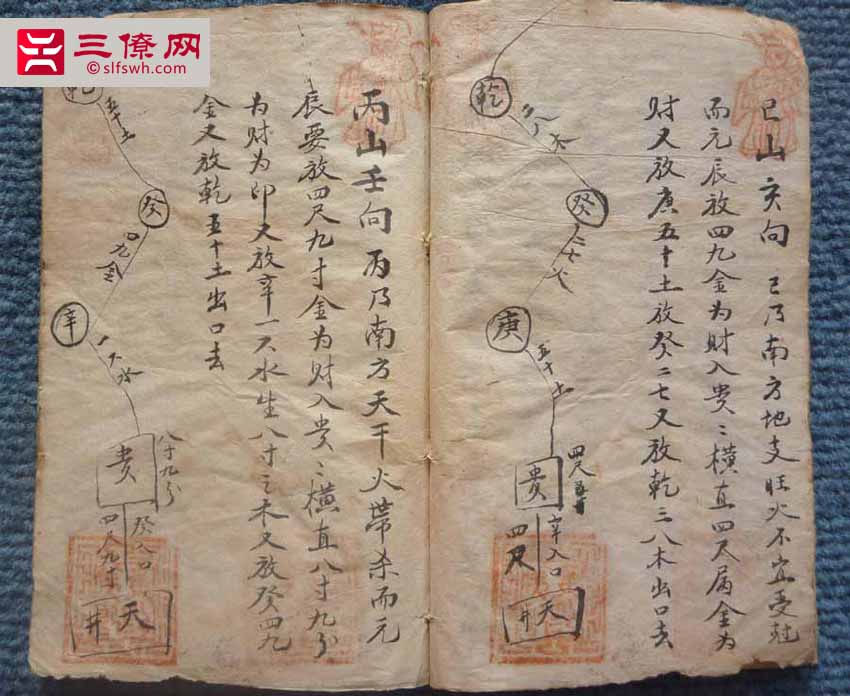 三僚网
©slfswh.com
巳山亥向 巳乃南方地支旺火不宜受尅
而元辰放四九金为财入贵〻横直四尺属金为
财又放庚五十土放癸二七又放乾三八木出口去
乾
三八木
癸
二七火
庚
五十土
贵
四尺
辛入口
四尺
天井
丙山壬向 丙乃南方天干火带杀而元
辰要放四尺九寸金为财入贵〻横直八寸九分
为财为印又放辛一六水生八寸之木又放癸四九
金又放乾五十土出口去
乾
五十土
癸
四九金
辛
一六水
贵
八寸九分
癸入口
四尺九寸
天井